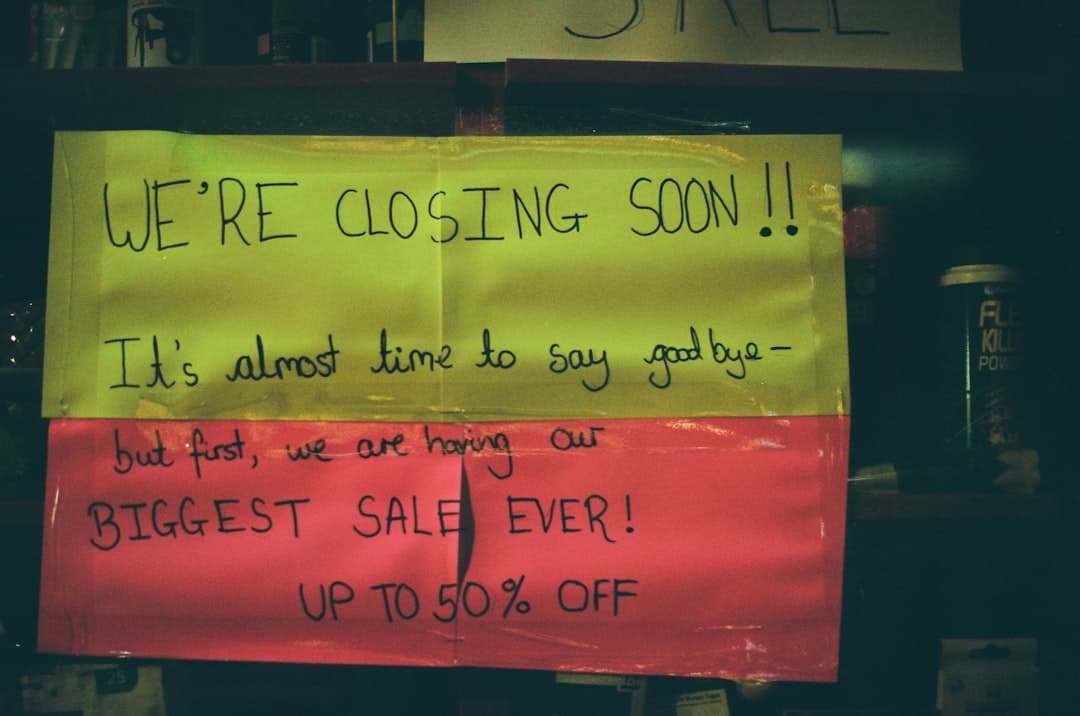 SALE
WE'RE CLOSING SOON!!
It's almost time to say goodbye-
but first, we are having our
BIGGEST SALE EVER!
UP TO 50% OFF
KILL
POW
25